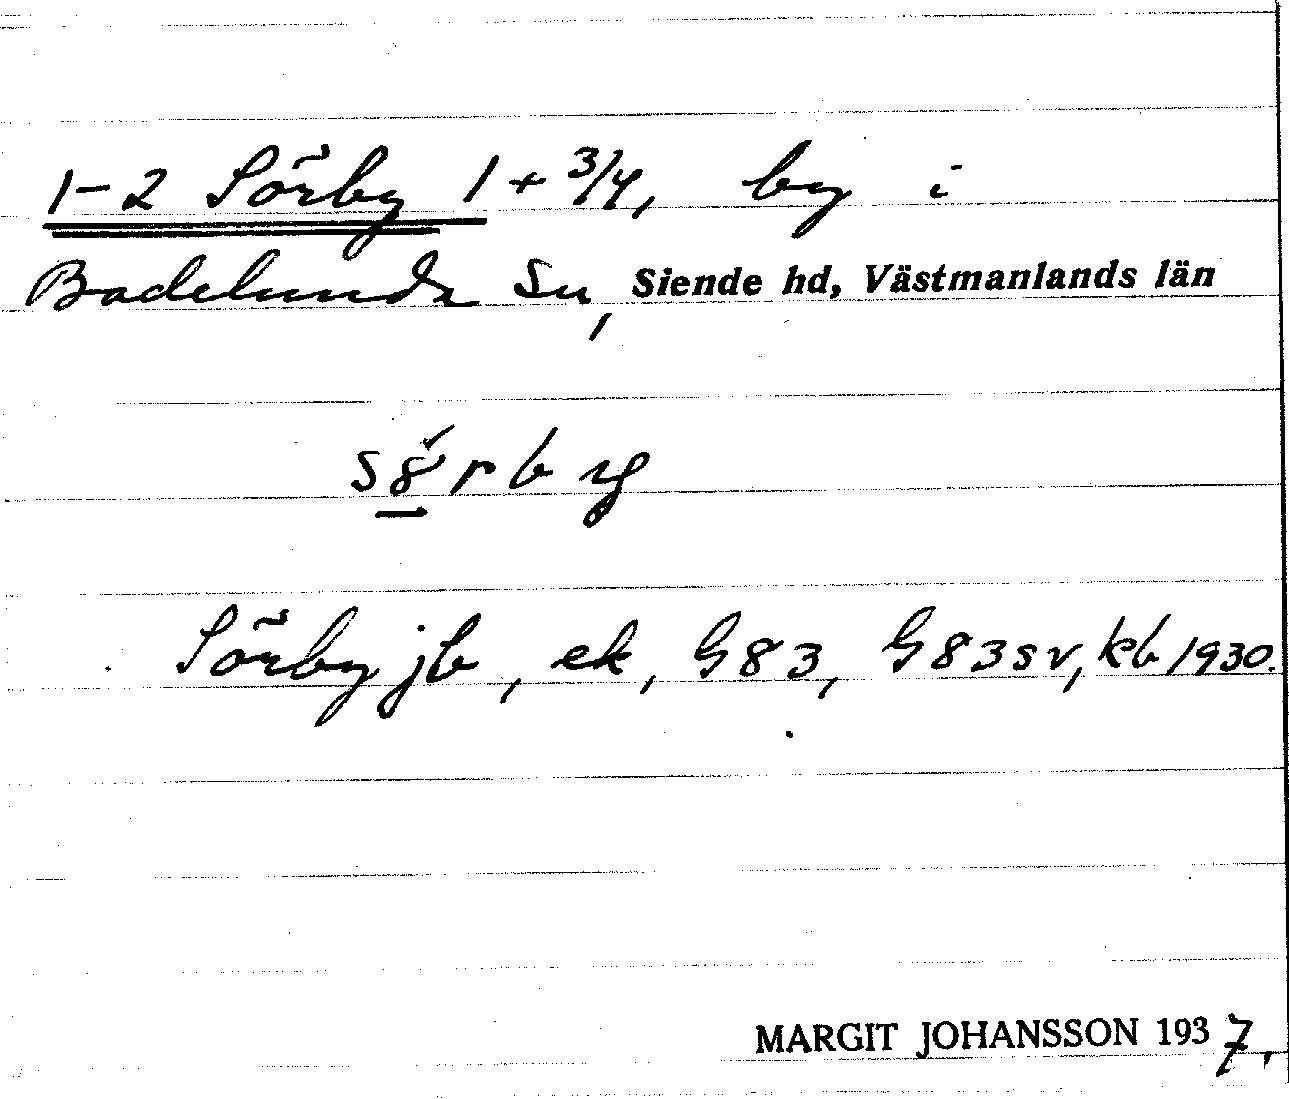 1-2 Sörby 1 + 3/4, by i
Badelunda sn, Siende hd, Västmanlands län
Sörby jb, ek, G83, G83sv, kb 1930.
MARGIT JOHANSSON 1937.